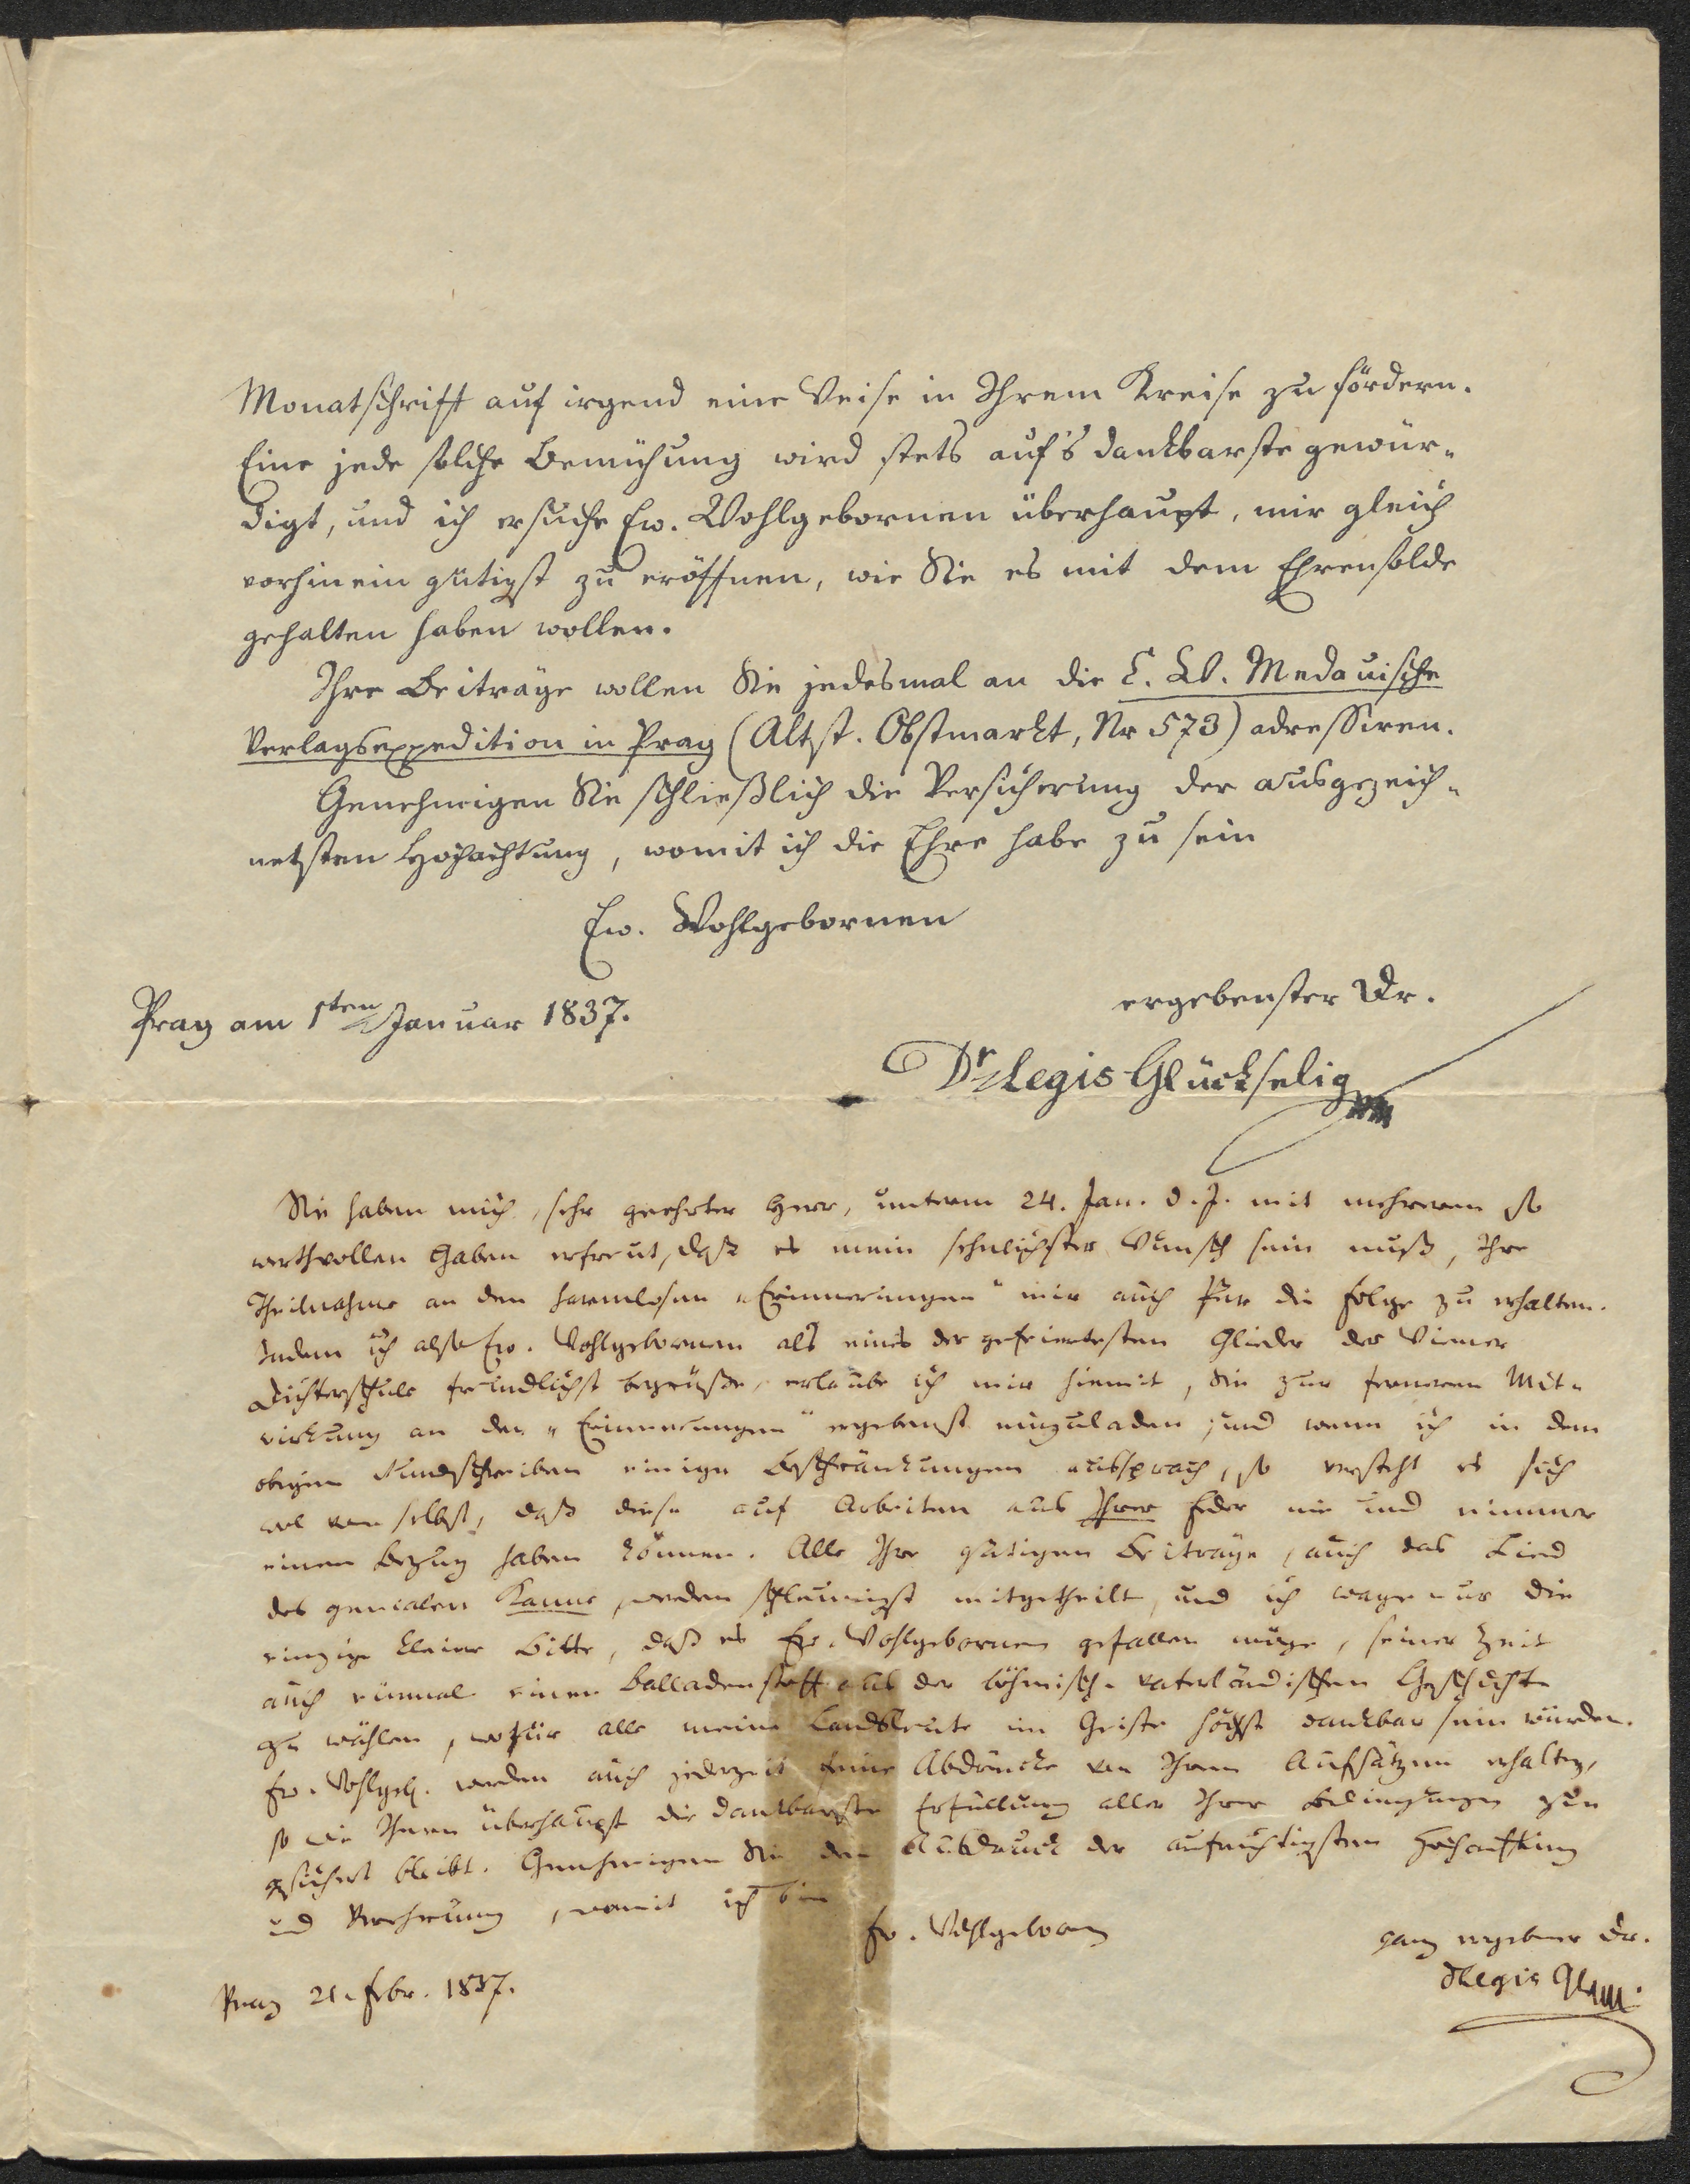 Monatschrift auf irgend eine Weise in Ihrem Kreise zu fördern.
Eine jede solche Bemühung wird stets auf's dankbarste gewür-
digt, und ich ersuche Ew. Wohlgebornen überhaupt, mir gleich
vorhinein gütigst zu eröffnen, wie Sie es mit dem Ehrensolde
gehalten haben wollen.
Ihre Beiträge wollen Sie jedesmal an die C. W. Medauische
Verlagsexpedition in Prag (Altst. Obstmarkt, Nr 573) adressiren.
Genehmigen Sie schließlich die Versicherung der ausgezeich-
netsten Hochachtung, womit ich die Ehre habe zu sein
Ew. Wohlgebornen
ergebenster Dr.
Prag am 1ten Januar 1837.
Dr Legis Glückselig
Sie haben mich, sehr geehrter Herr, unterm 24. Jan. d. J. mit mehreren so
werthvollen Gaben erfreut, daß es mein sehnlichster Wunsch sein muß, Ihre
Theilnahme an den harmlosen „Erinnerungen" mir auch für die Folge zu erhalten.
Indem ich also Ew. Wohlgebornen als eines der gefeiertesten Glieder der Wiener
Dichterschule freundlichst begrüße, erlaube ich mir hiemit, Sie zur ferneren Mit-
wirkung an den „Erinnerungen" ergebenst einzuladen; und wenn ich in dem
obigen Rundschreiben einige Beschränkungen aussprach, so versteht es sich
wol von selbst, daß diese auf Arbeiten aus Ihrer Feder nie und nimmer
einen Bezug haben können. Alle Ihre gütigen Beiträge, auch das Lied
des genialen Kanne, werden schleunigst mitgetheilt, und ich wage nur die
einzige kleine Bitte, daß es Ew. Wohlgebornen gefallen möge, seiner Zeit
auch einmal einen Balladenstoff aus der böhmisch-vaterländischen Geschichte
zu wählen, wofür alle meine Landsleute im Geiste höchst dankbar sein würden.
Ew. Wohlgeb. werden auch jederzeit feine Abdrücke von Ihren Aufsätzen erhalten,
so wie Ihnen überhaupt die dankbarste Erfüllung aller Ihrer Bedingungen
gesichert bleibt. Genehmigen Sie den Ausdruck der aufrichtigsten Hochachtung
und Verehrung, womit ich bin
Ew. Wohlgeborn
ganz ergebener Dr.
Legis
Prag 21. Febr. 1837.